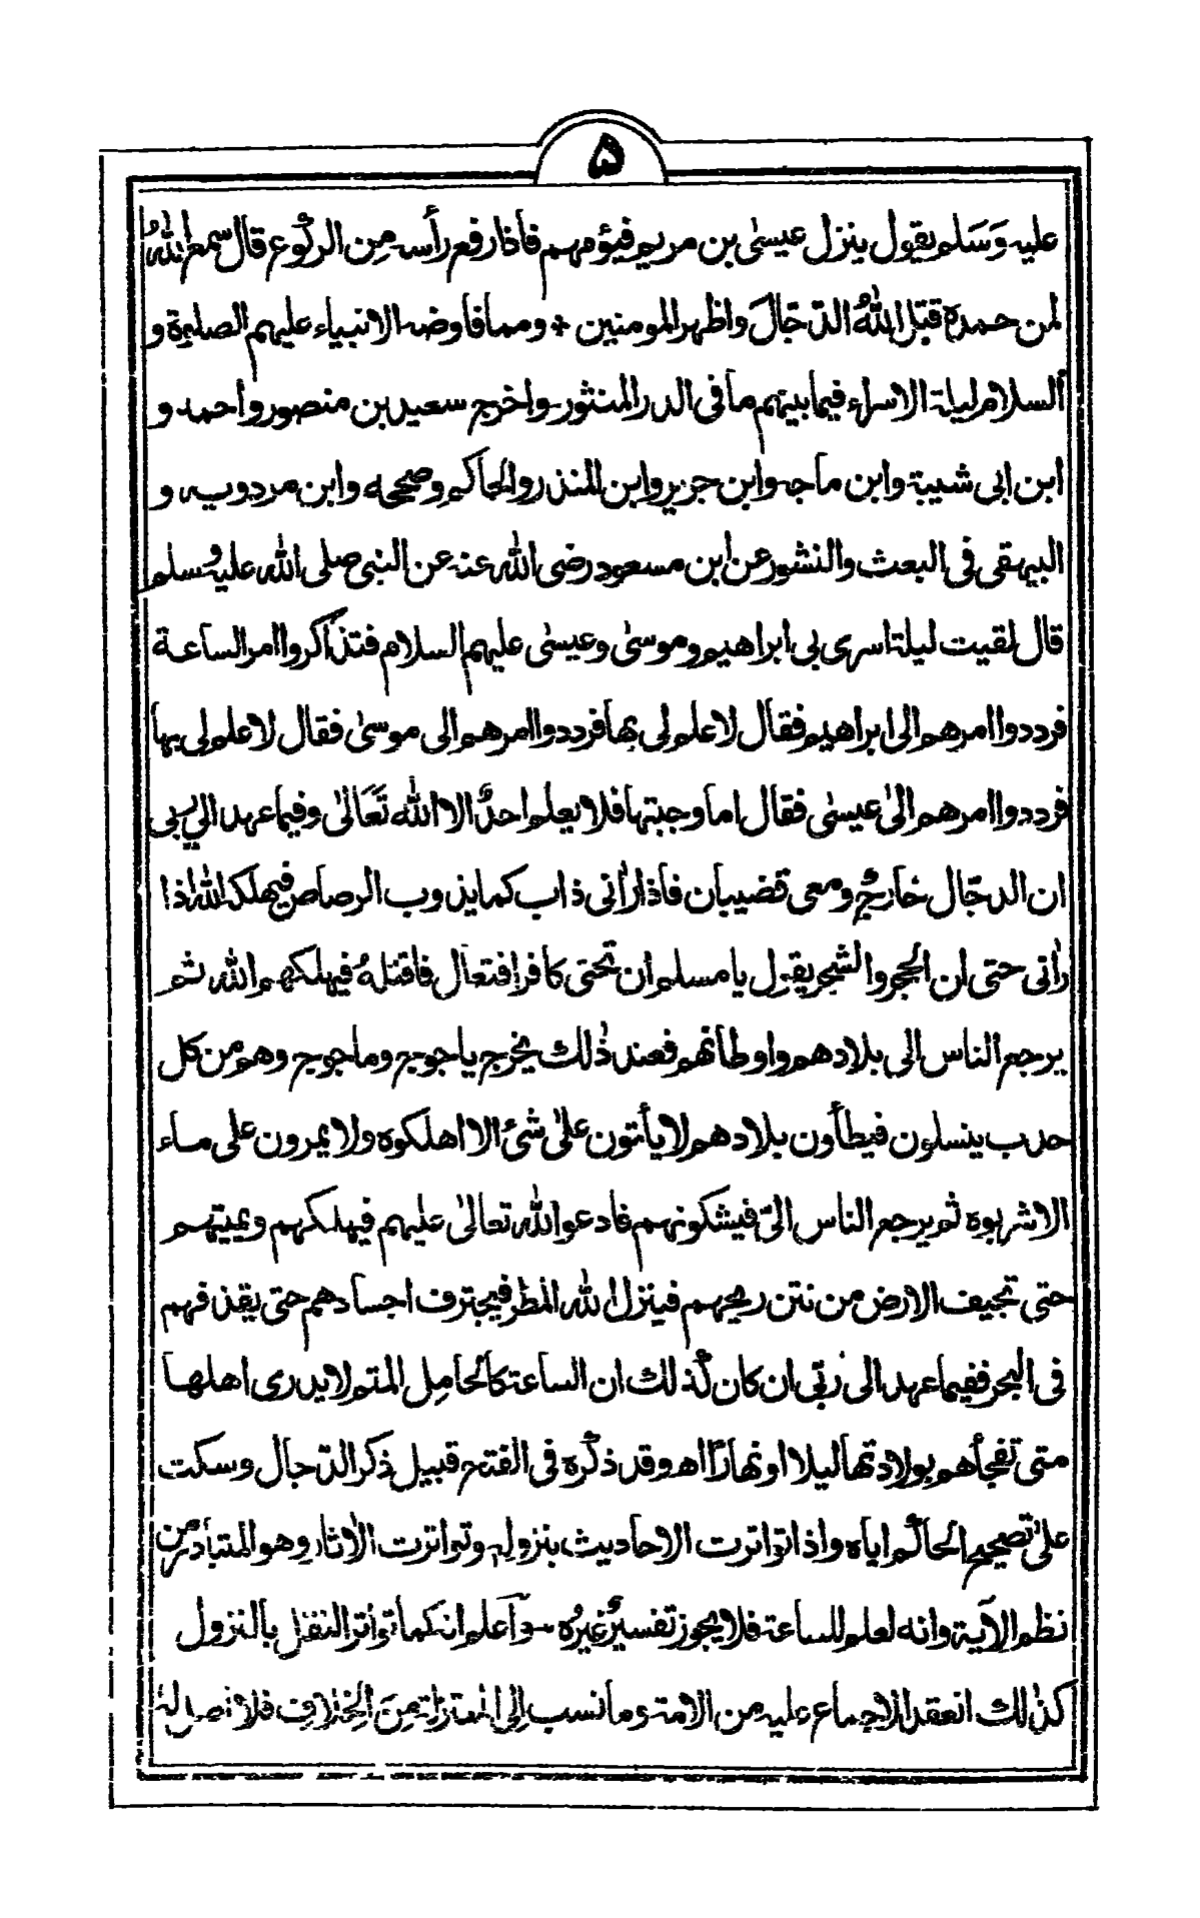 ۵
عليه وَسَلم يقول ينزل عيسىٰ بن مريم فيؤمهم فاذا رفع رأسه مِن الركُوع قال سمع اللهُ
لمن حمدہ قتل اللهُ الدّجّالَ واظهر المومنين + ومما فاوضه الانبياء عليهم الصلوة و
السلام ليلة الاسراء فيما بينهم ما فى الدر المنثور۔ واخرج سعيد بن منصور واحمد و
ابن ابى شيبة وابن ماجه وابن جرير وابن المنذر والحاكم وصححه وابن مردويه و
البيهقى فى البعث والنشور عن ابن مسعود رضى الله عنه عن النبى صلى الله عليه وسلم
قال لقيت ليلة اسرى بى ابراهيم وموسىٰ وعيسىٰ عليهم السلام فتذاكروا امر الساعة
فرددوا امرهم الى ابراهيم فقال لا علم لى بها فرددوا امرهم الى موسىٰ فقال لا علم لى بها
فرددوا امرهم الىٰ عيسىٰ فقال اما وجبتها فلا يعلم احدٌ الا الله تَعَالىٰ وفيما عهد الى ربى
ان الدجّال خارجٌ ومعى قضيبان فاذا رأنى ذاب كما يذوب الرصاص فيهلكه الله اذا
رأنى حتى ان الحجر والشجر يقول يا مسلم ان تحتى كافرا فتعال فاقتلهُ فيهلكهم الله ثم
يرجع الناس الى بلادهم واوطانهم فعند ذٰلك يخرج ياجوج وماجوج وهم من كل
حدب ينسلون فيطأون بلادهم لا يأتون علىٰ شئ الا اهلكوه ولا يمرون على ماء
الا شربوه ثم يرجع الناس الىّ فيشكونهم فادعو الله تعالىٰ عليهم فيهلكهم ويميتهم
حتى تجيف الارض من نتن ريحهم فينزل الله المطر فيجترف اجسادهم حتى يقذفهم
فى البحر ففيما عهد الى ربّى ان كان كذٰلك ان الساعة كالحامل المتم لا يدرى اهلها
متى تفجأهم بولادتها ليلا او نهارًا اھ وقد ذكره فى الفتح قبيل ذكر الدّجال وسكت
علىٰ تصحيح الحاكم اياه واذا تواترت الاحاديث بنزوله وتواترت الاٰثار وهو المتبادر من
نظم الآية وانه لعلم للساعة فلا يجوز تفسيرٌ غيرُه ۔ وَاَعلم انه كما تواتر النقل بالنزول
كذٰلك انعقد الاجماع عليه من الامة وما نسب اِلى المعتزلة مِنَ الخِلافِ فلا اصل لهٗ